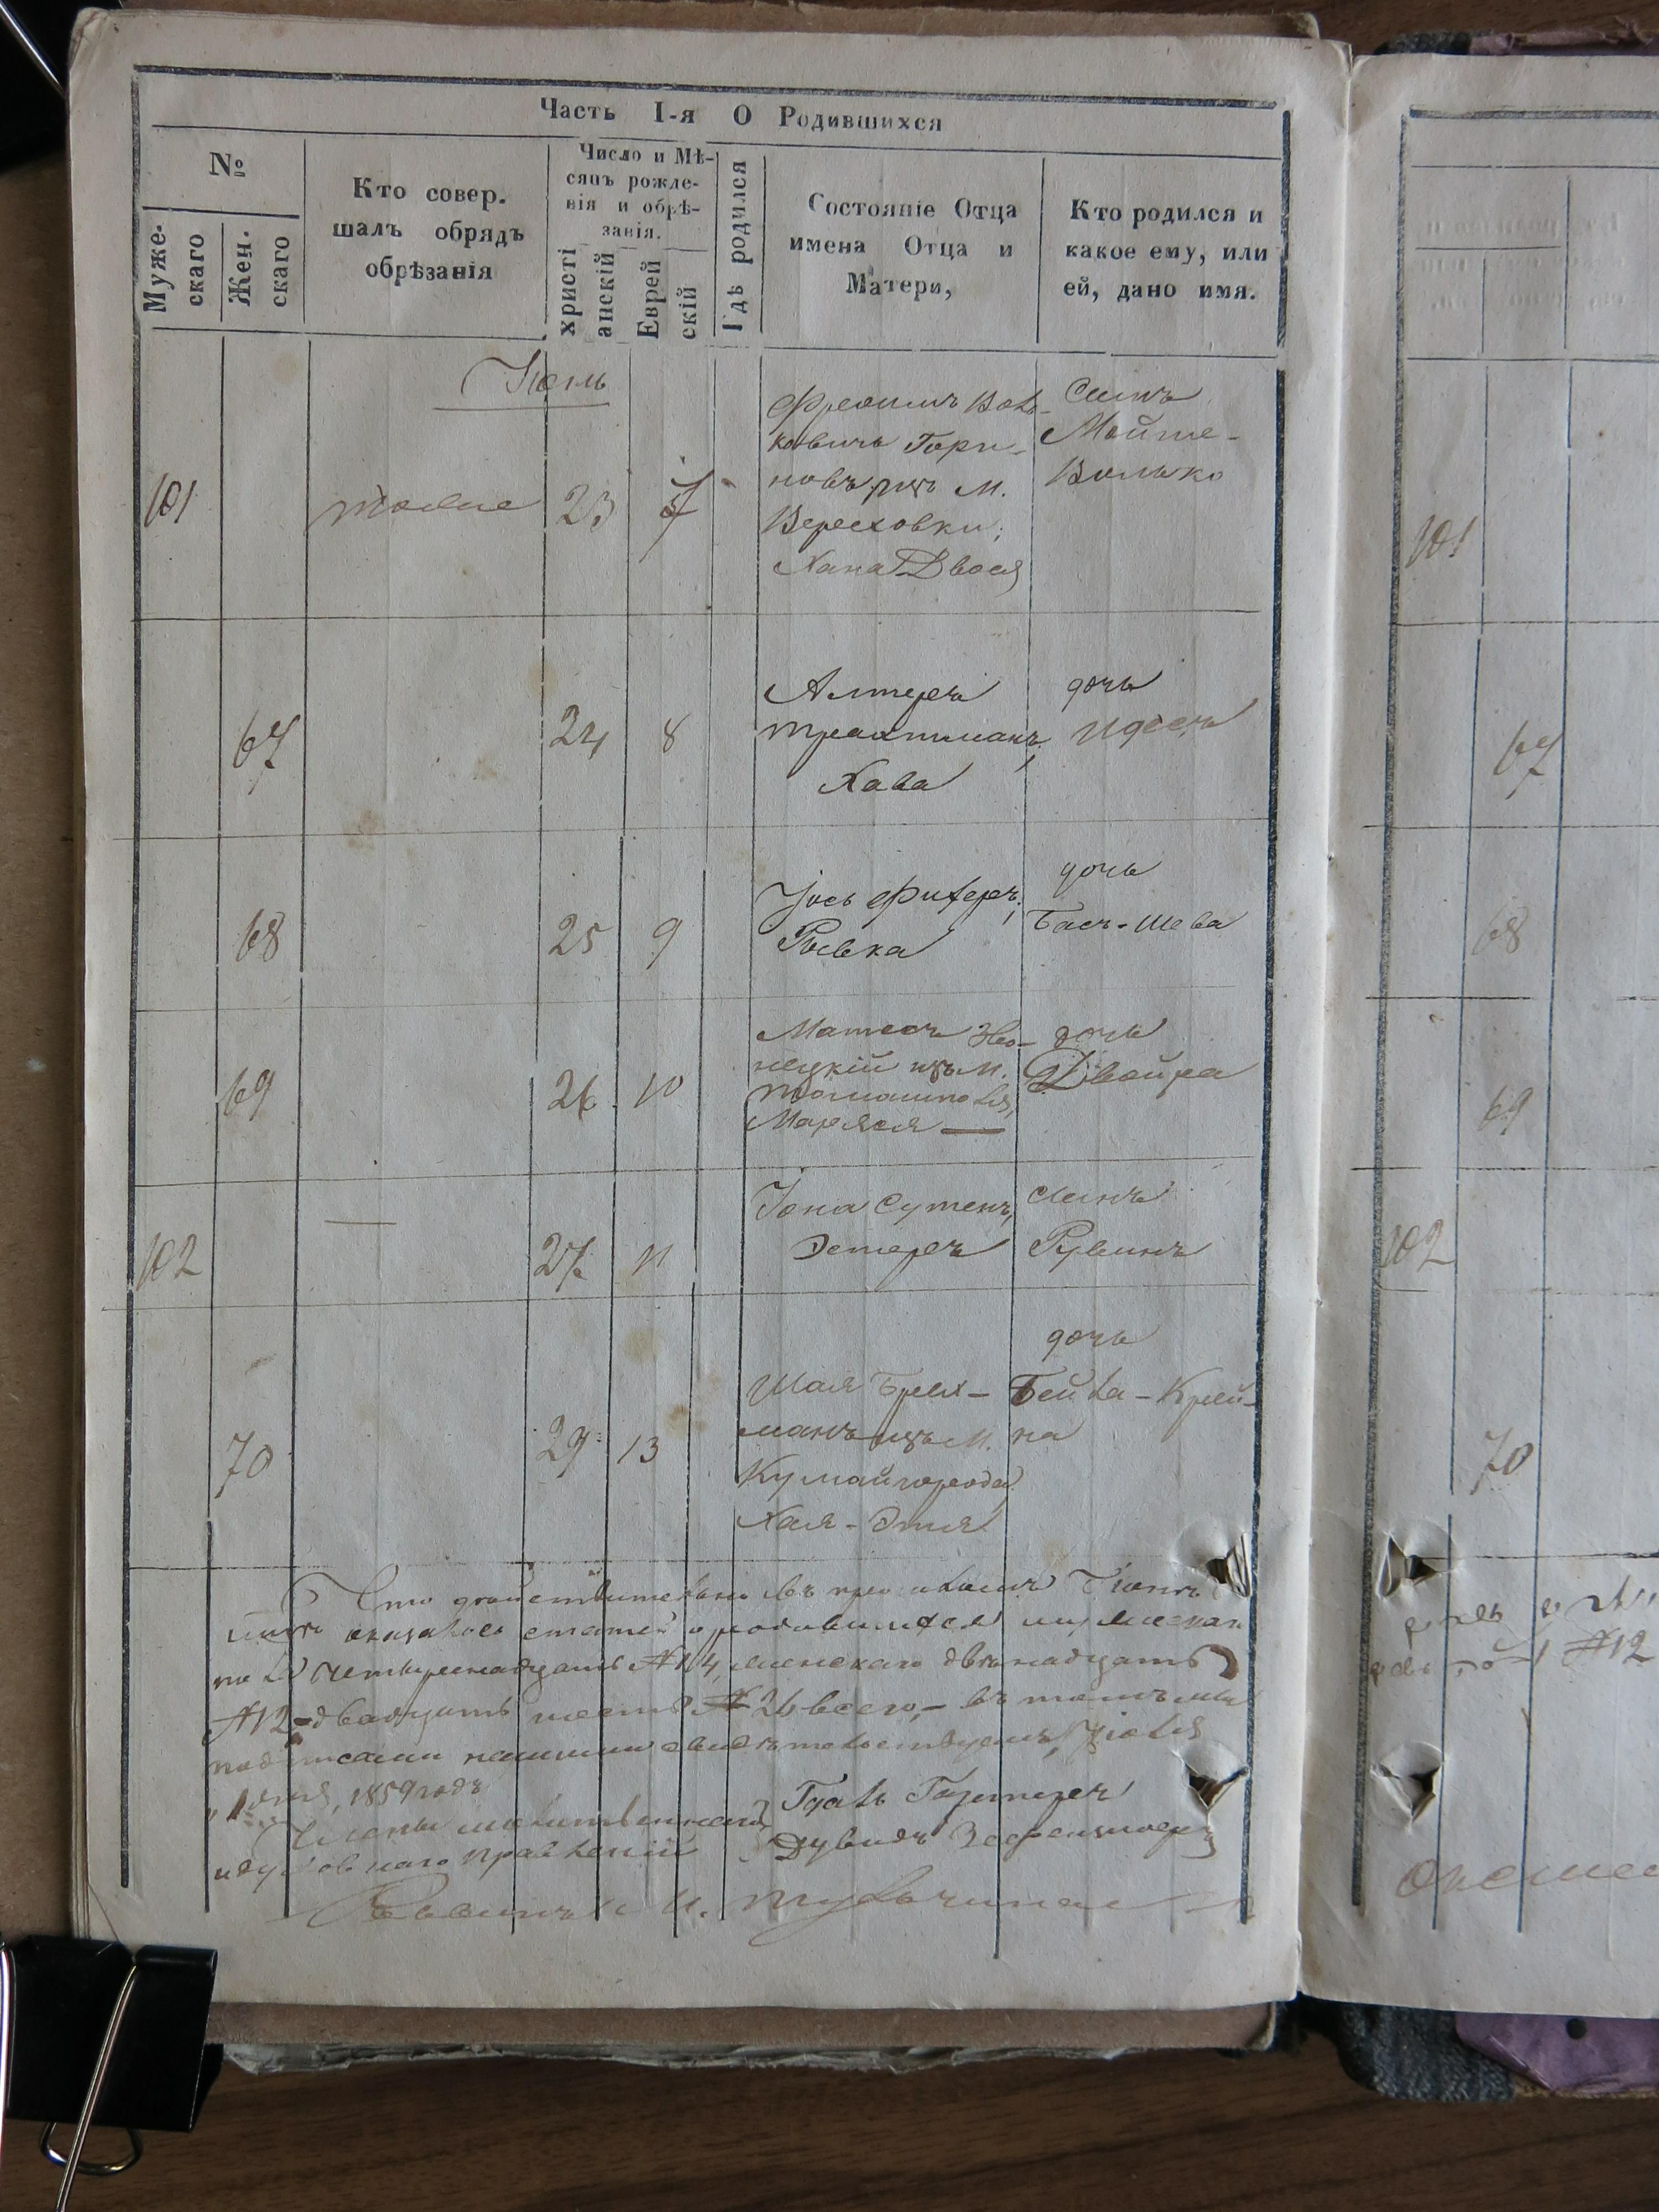 Часть I-я О Родившихся
№
Муже-
скаго
Жен.
скаго
Кто совер.
шалъ обрядъ
обрѣзанія
Число и Мѣ-
сяцъ рожде-
нія и обрѣ-
занія.
христі
анскій
Еврей
скій
Гдѣ родился
Состояніе Отца
имена Отца и
Матери,
Кто родился и
какое ему, или
ей, дано имя.
Іюнь
101
тоже
23
7
Фроимъ Воль-
ковичъ Гори-
новъ изъ М.
Вереховки;
Хана Двося
Сынъ
Мойше-
Волько
67
24
8
Алтеръ
Трахтманъ,
Хава
дочь
Идесъ
68
25
9
Іось Фихеръ,
Ривка
дочь
Бася-Шева
69
26
10
Матесъ
нецкій изъ М.
Томашполя,
Маряся —
дочь
Двойра
102
—
27
11
Іона Сутенъ,
Эстеръ
сынъ
Рувинъ
70
29
13
Шая Брех-
манъ изъ М.
Кумайгорода,
Хая-Этля
дочь
Бейла-Крей-
на
Что действительно въ
оказалось статей о родившихся мужескаго
пола четырнадцать №14, женскаго двѣнадцать
№12-двадцать шесть №26 всего,- въ томъ
подписами нашими свидѣтельствуемъ, Іюля
1 дня, 1859 года
Члены молитвеннаго
и духовнаго правленій
Гдаль Гортеръ
Дувидъ
Раввинъ
101
67
68
69
102
70
№12